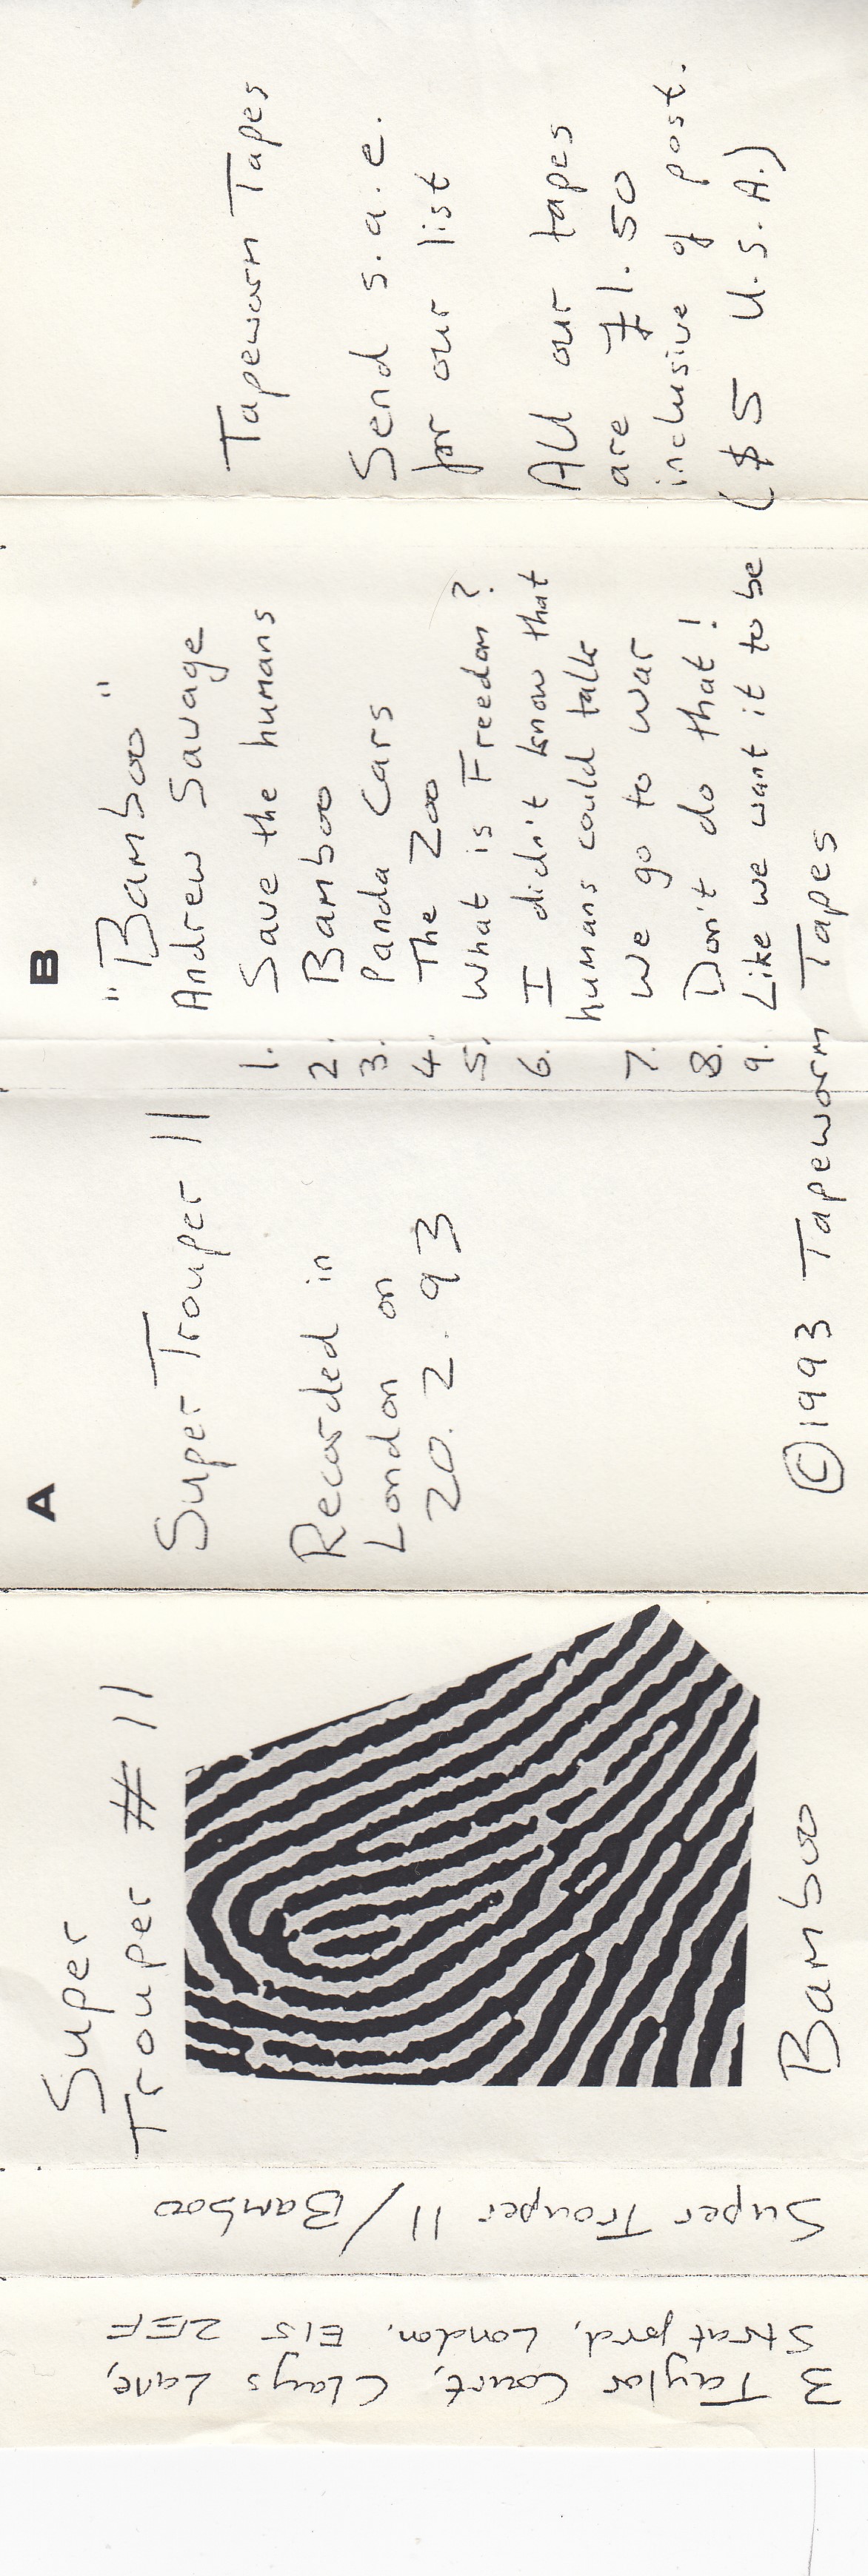 Tapeworm Tapes
Send s.a.e.
for our list
All our tapes
are £1.50
inclusive of post.
($5 U.S.A.)
B
"Bamboo"
Andrew Savage
1. Save the humans
2. Bamboo
3. Panda Cars
4. The Zoo
5. What is Freedom?
6. I didn't know that
humans could talk
7. We go to war
8. Don't do that!
9. Like we want it to be
A
Super Trouper 11
Recorded in
London on
20.2.93
©1993 Tapeworm Tapes
Super
Trouper #11
Bamboo
Super Trouper 11/Bamboo
3 Taylor Court, Clays Lane,
Stratford, London. E15 2EF